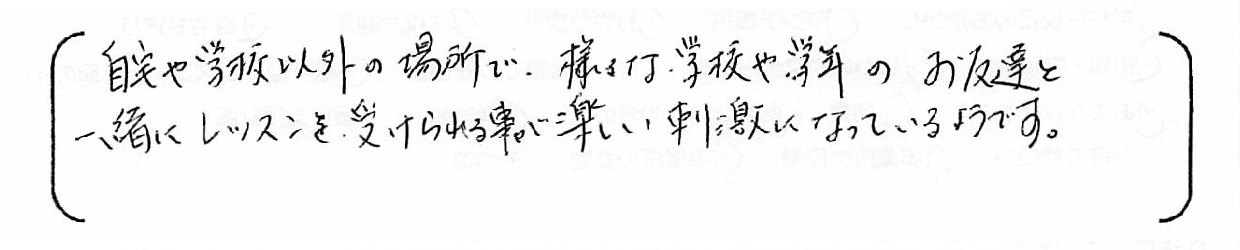 自宅や学校以外の場所で、様々な学校や学年のお友達と
一緒にレッスンを受けられる事が楽しい刺激になっているようです。